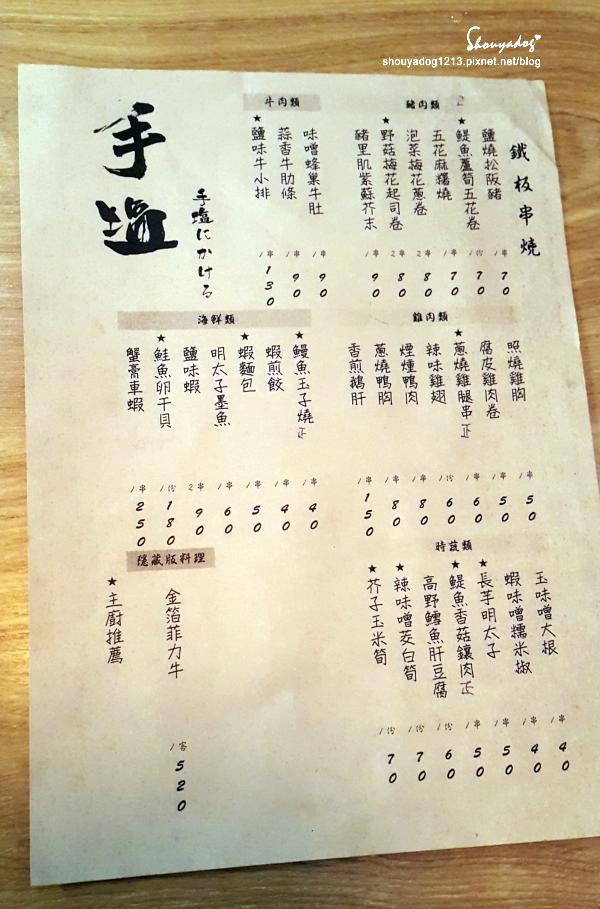 Shouyadog
shouyadog1213.pixnet.net/blog
鐵板串燒
豬肉類
鹽燒松阪豬 1串 70
★鯷魚蘆筍五花卷 1份 70
五花麻糬燒 1串 70
泡菜梅花蔥卷 2串 80
★野菇梅花起司卷 2串 80
豬里肌紫蘇芥末 1串 90
牛肉類
味噌蜂巢牛肚 1串 90
蒜香牛肋條 1串 90
★鹽味牛小排 1串 130
手塩にかける
手塩
雞肉類
照燒雞胸 1串 50
腐皮雞肉卷 1串 50
★蔥燒雞腿串 正 1份 60
辣味雞翅 1份 60
煙燻鴨肉 1串 80
蔥燒鴨胸 1串 80
香煎鵝肝 1串 150
海鮮類
★鰻魚玉子燒 正 1串 40
蝦煎餃 1串 40
★蝦麵包 1串 50
明太子墨魚 1串 60
鹽味蝦 2串 90
★鮭魚卵干貝 1份 180
蟹膏車蝦 1串 250
時蔬類
玉味噌大根 1串 40
蝦味噌糯米椒 1串 40
★長芋明太子 1串 50
★鯷魚香菇鑲肉 正 1串 50
高野鱈魚肝豆腐 1份 60
★辣味噌茭白筍 1份 70
★芥子玉米筍 1份 70
隱藏版料理
金箔菲力牛 1客 520
★主廚推薦